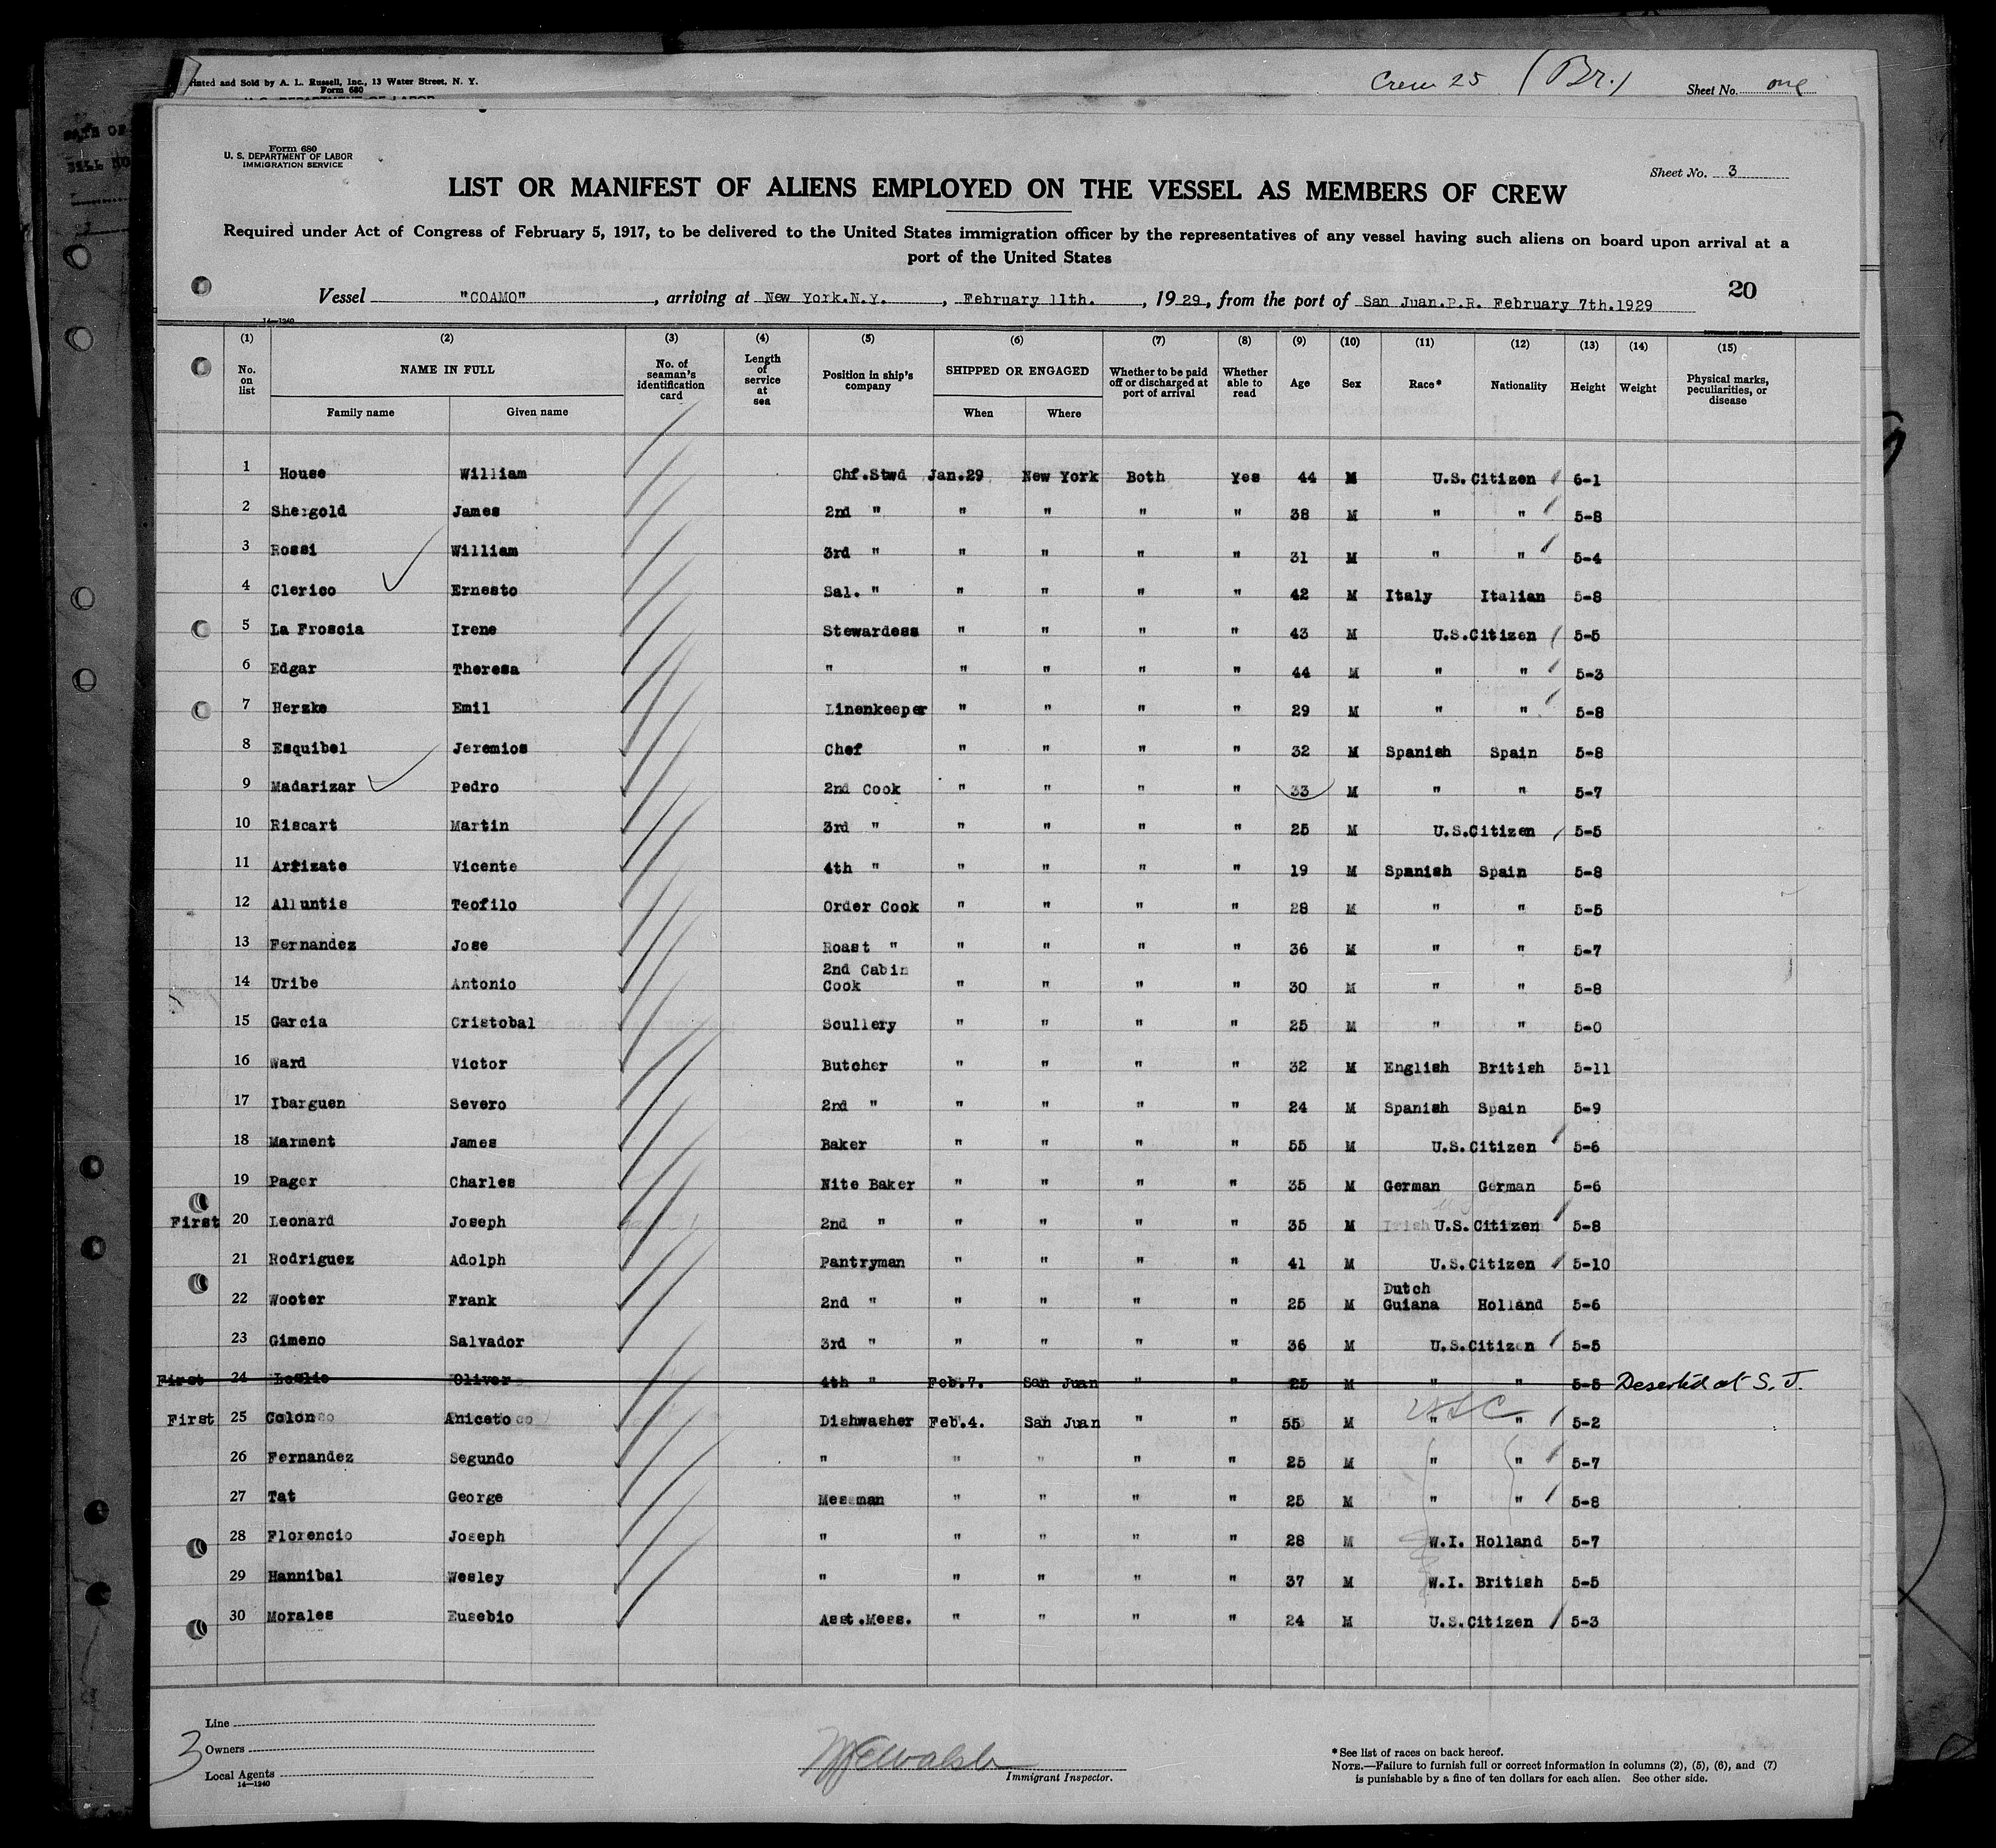 Printed and Sold by A. L. Russell, Inc., 13 Water Street, N. Y.
Form 680
Crew 25 (Br.)
Sheet No. one
Form 680
U. S. DEPARTMENT OF LABOR
IMMIGRATION SERVICE
Sheet No. 3
LIST OR MANIFEST OF ALIENS EMPLOYED ON THE VESSEL AS MEMBERS OF CREW
Required under Act of Congress of February 5, 1917, to be delivered to the United States immigration officer by the representatives of any vessel having such aliens on board upon arrival at a
port of the United States
20
Vessel "COAMO", arriving at New York.N.Y., February 11th., 1929, from the port of San Juan.P.R. February 7th.1929
14—1240
(1) (2) (3) (4) (5) (6) (7) (8) (9) (10) (11) (12) (13) (14) (15)
No. on list NAME IN FULL Family name Given name No. of seaman's identification card Length of service at sea Position in ship's company SHIPPED OR ENGAGED When Where Whether to be paid off or discharged at port of arrival Whether able to read Age Sex Race* Nationality Height Weight Physical marks, peculiarities, or disease
1 House William Chf.Stwd Jan.29 New York Both Yes 44 M U.S.Citizen 6-1
2 Shergold James 2nd " " " " " 38 M " " 5-8
3 Rossi William 3rd " " " " " 31 M " " 5-4
4 Clerico Ernesto Sal. " " " " " 42 M Italy Italian 5-8
5 La Froscia Irene Stewardess " " " " 43 M U.S.Citizen 5-5
6 Edgar Theresa " " " " " 44 M " " 5-3
7 Herzke Emil Linenkeeper " " " " 29 M " " 5-8
8 Esquibel Jeremios Chef " " " " 32 M Spanish Spain 5-8
9 Madarizar Pedro 2nd Cook " " " " 33 M " " 5-7
10 Riscart Martin 3rd " " " " " 25 M U.S.Citizen 5-5
11 Arrizate Vicente 4th " " " " " 19 M Spanish Spain 5-8
12 Alluntis Teofilo Order Cook " " " " 28 M " " 5-5
13 Fernandez Jose Roast " " " " " 36 M " " 5-7
14 Uribe Antonio 2nd Cabin Cook " " " " 30 M " " 5-8
15 Garcia Cristobal Scullery " " " " 25 M " " 5-0
16 Ward Victor Butcher " " " " 32 M English British 5-11
17 Ibarguen Severo 2nd " " " " " 24 M Spanish Spain 5-9
18 Marment James Baker " " " " 55 M U.S.Citizen 5-6
19 Pager Charles Nite Baker " " " " 35 M German German 5-6
First 20 Leonard Joseph 2nd " " " " " 35 M Irish U.S.Citizen 5-8
21 Rodriguez Adolph Pantryman " " " " 41 M U.S.Citizen 5-10
22 Wooter Frank 2nd " " " " " 25 M Dutch Guiana Holland 5-6
23 Gimeno Salvador 3rd " " " " " 36 M U.S.Citizen 5-5
First 24 Leslie Oliver 4th " Feb.7. San Juan " " 25 M " " 5-5 Deserted at S. J.
First 25 Colon Aniceto Dishwasher Feb.4. San Juan " " 55 M " " 5-2
USC
26 Fernandez Segundo " " " " " 25 M " " 5-7
27 Tat George Messman " " " " 25 M " " 5-8
28 Florencio Joseph " " " " " 28 M W.I. Holland 5-7
29 Hannibal Wesley " " " " " 37 M W.I. British 5-5
30 Morales Eusebio Asst.Mess. " " " " 24 M U.S.Citizen 5-3
Line
3 Owners
Local Agents
14—1240
Walsh
Immigrant Inspector.
*See list of races on back hereof.
NOTE.—Failure to furnish full or correct information in columns (2), (5), (6), and (7)
is punishable by a fine of ten dollars for each alien. See other side.